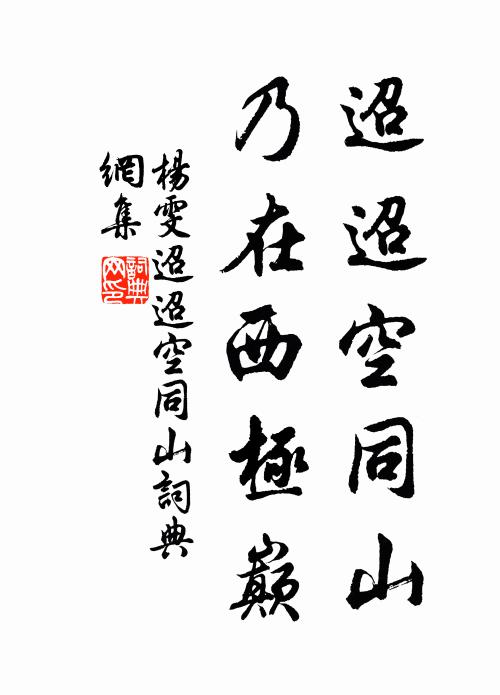 迢迢空同山
乃在西極巔
楊雯迢迢空同山詞典
網集
詞典網印